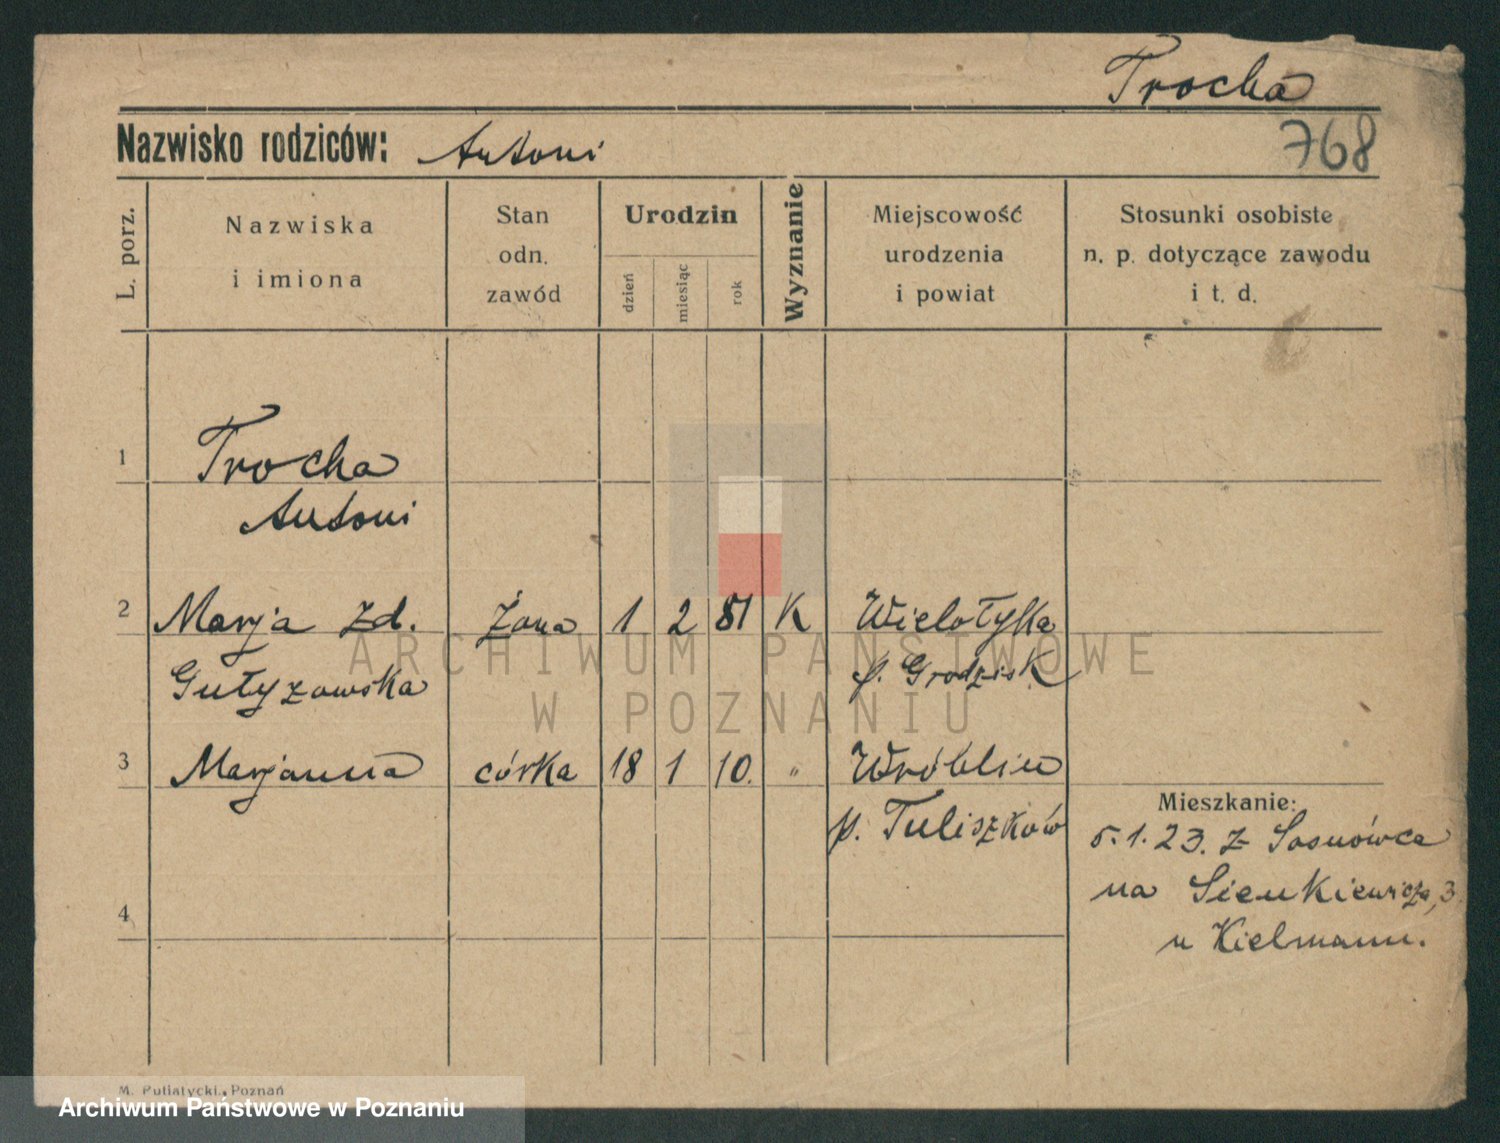 Trocha
Nazwisko rodziców: Antoni
768
L. porz.
Nazwiska
i imiona
Stan
odn.
zawód
Urodzin
dzień
miesiąc
rok
Wyznanie
Miejscowość
urodzenia
i powiat
Stosunki osobiste
n. p. dotyczące zawodu
i t. d.
1
Trocha
Antoni
2 Marja zd. żona 1 2 81 K Wielołyka
Gułyzowska p. Grodzisk
3 Marjanna córka 18 1 10. " Wróblin
p. Tuliszków
Mieszkanie:
5.1.23. z Sosnówca
na Sienkiewicza, 3
u Kielmann.
4
M. Putiatycki, Poznań
ARCHIWUM PAŃSTWOWE
W POZNANIU
Archiwum Państwowe w Poznaniu